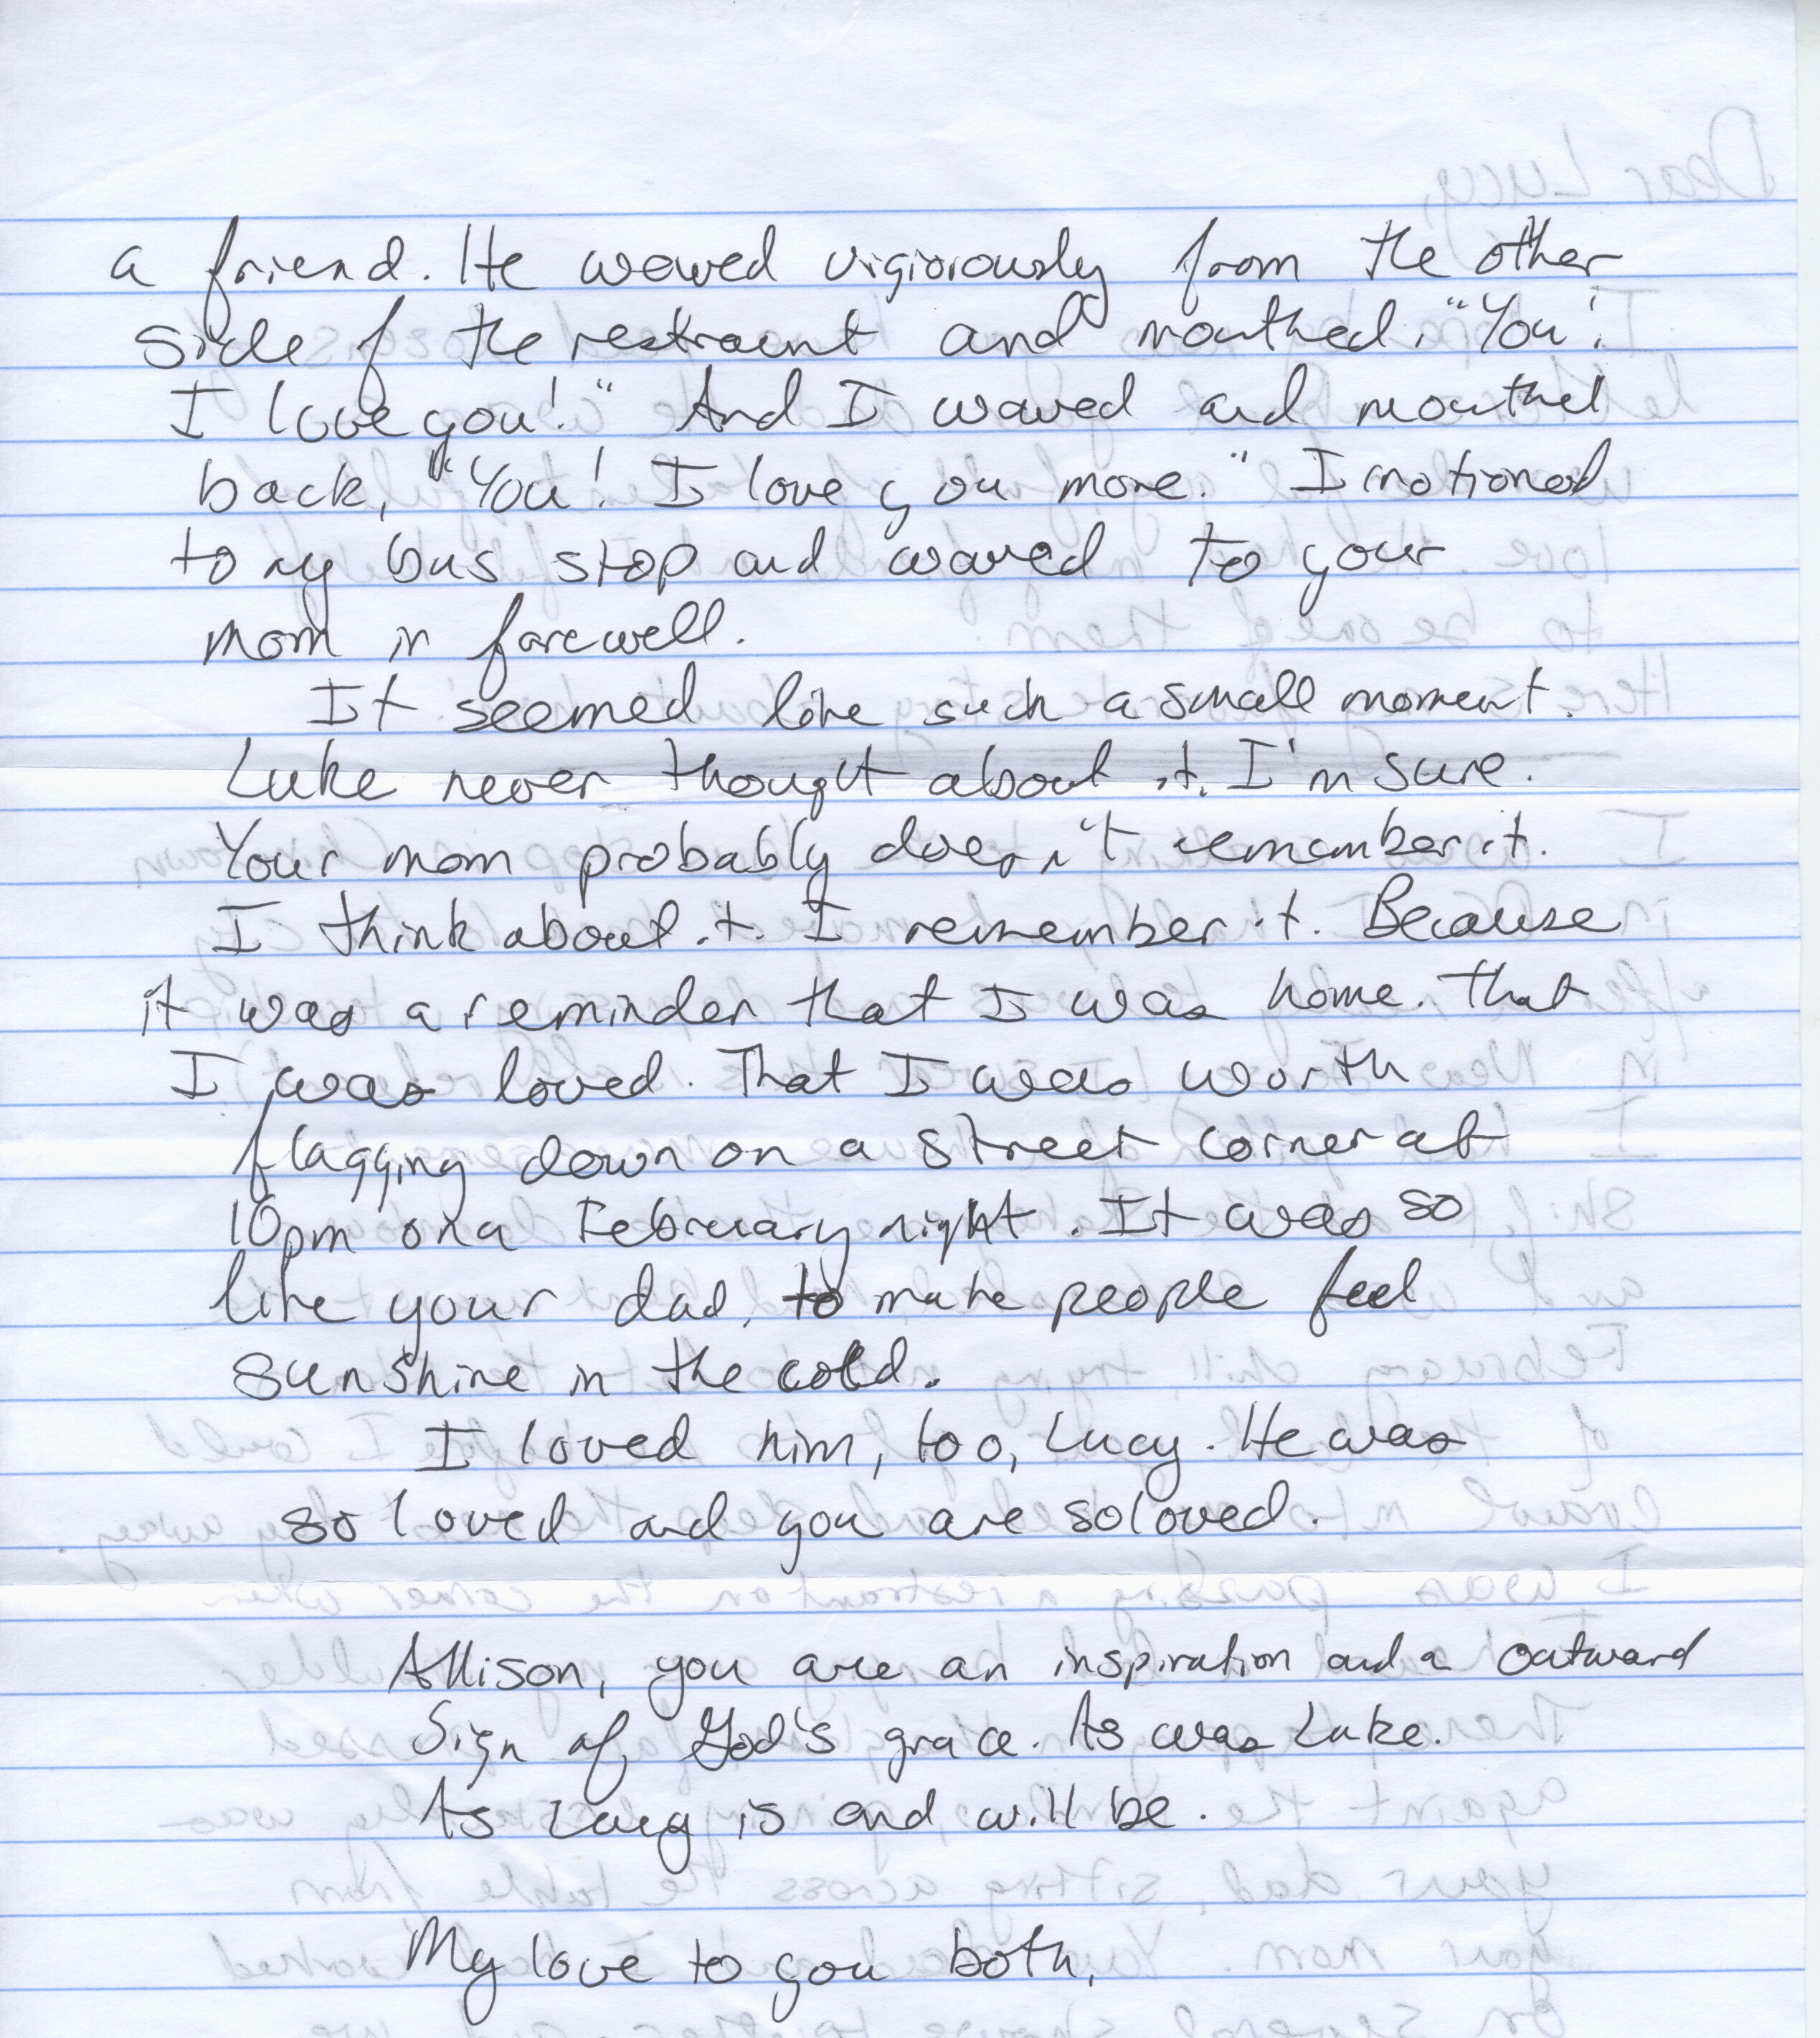 a friend. He waved vigiorously from the other
side of the restraunt and mouthed, "You!
I love you!" And I waved and mouthed
back, "You! I love you more." I motioned
to my bus stop and waved to your
mom in farewell.
It seemed like such a small moment.
Luke never thought about it, I'm sure.
Your mom probably doesn't remember it.
I think about it. I remember it. Because
it was a reminder that I was home. That
I was loved. That I was worth
flagging down on a street corner at
10pm on a February night. It was so
like your dad, to make people feel
sunshine in the cold.
I loved him, too, Lucy. He was
so loved and you are so loved.
Allison, you are an inspiration and a outward
Sign of God's grace. As was Luke.
As Lucy is and will be.
My love to you both,